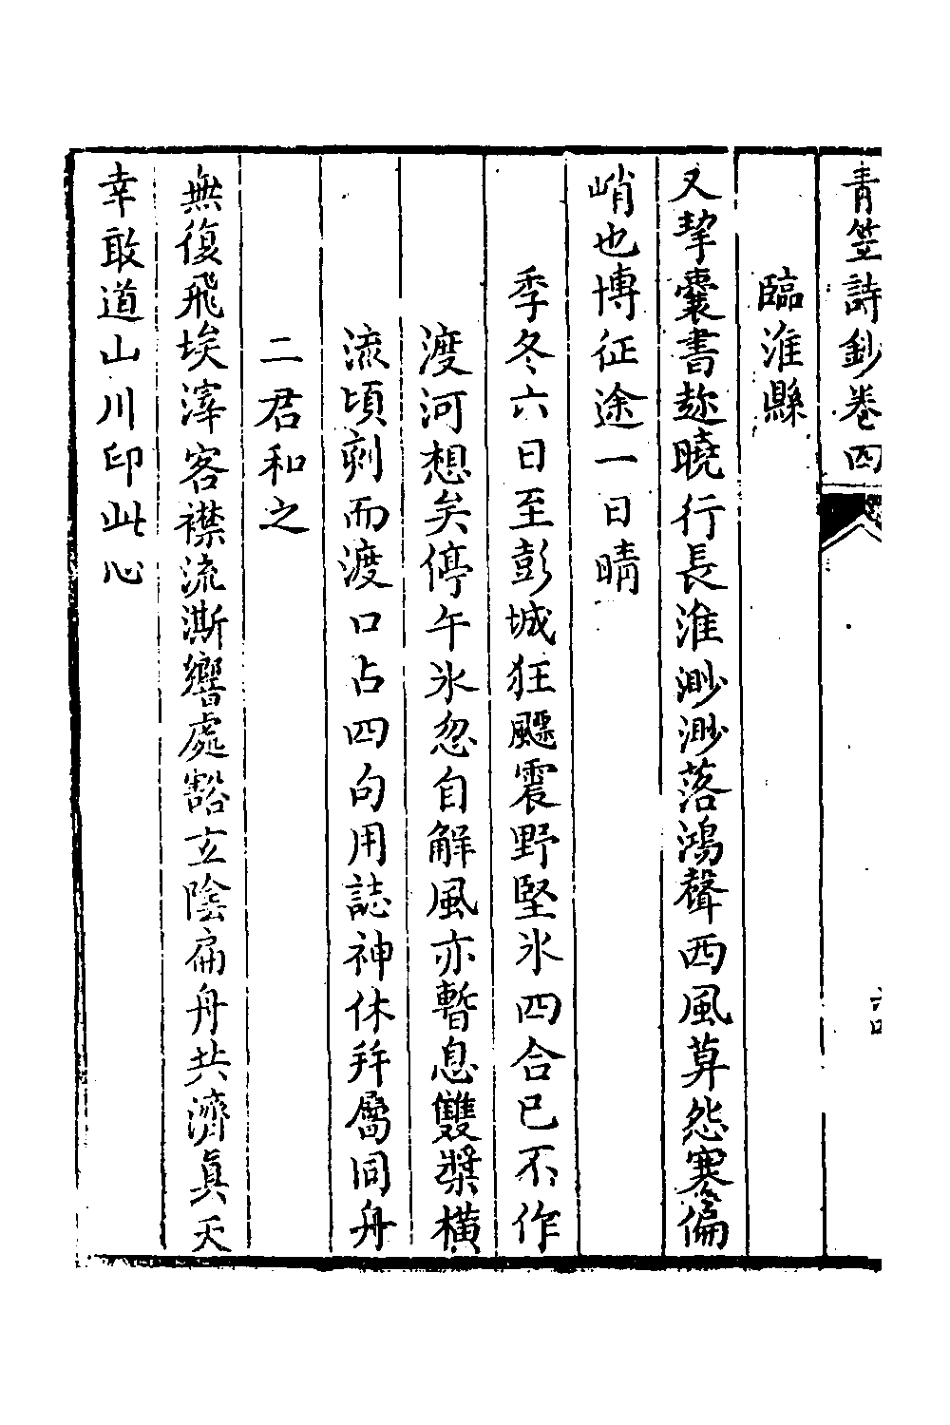 青笠詩鈔卷四
臨淮縣
又挈囊書趂曉行長淮渺渺落鴻聲西風莫怨寒偏
峭也博征途一日晴
季冬六日至彭城狂飈震野堅氷四合已不作
渡河想矣停午氷忽自解風亦暫息雙槳橫
流頃刻而渡口占四句用誌神休并屬同舟
二君和之
無復飛埃滓客襟流澌響處豁玄陰扁舟共濟眞天
幸敢道山川印此心